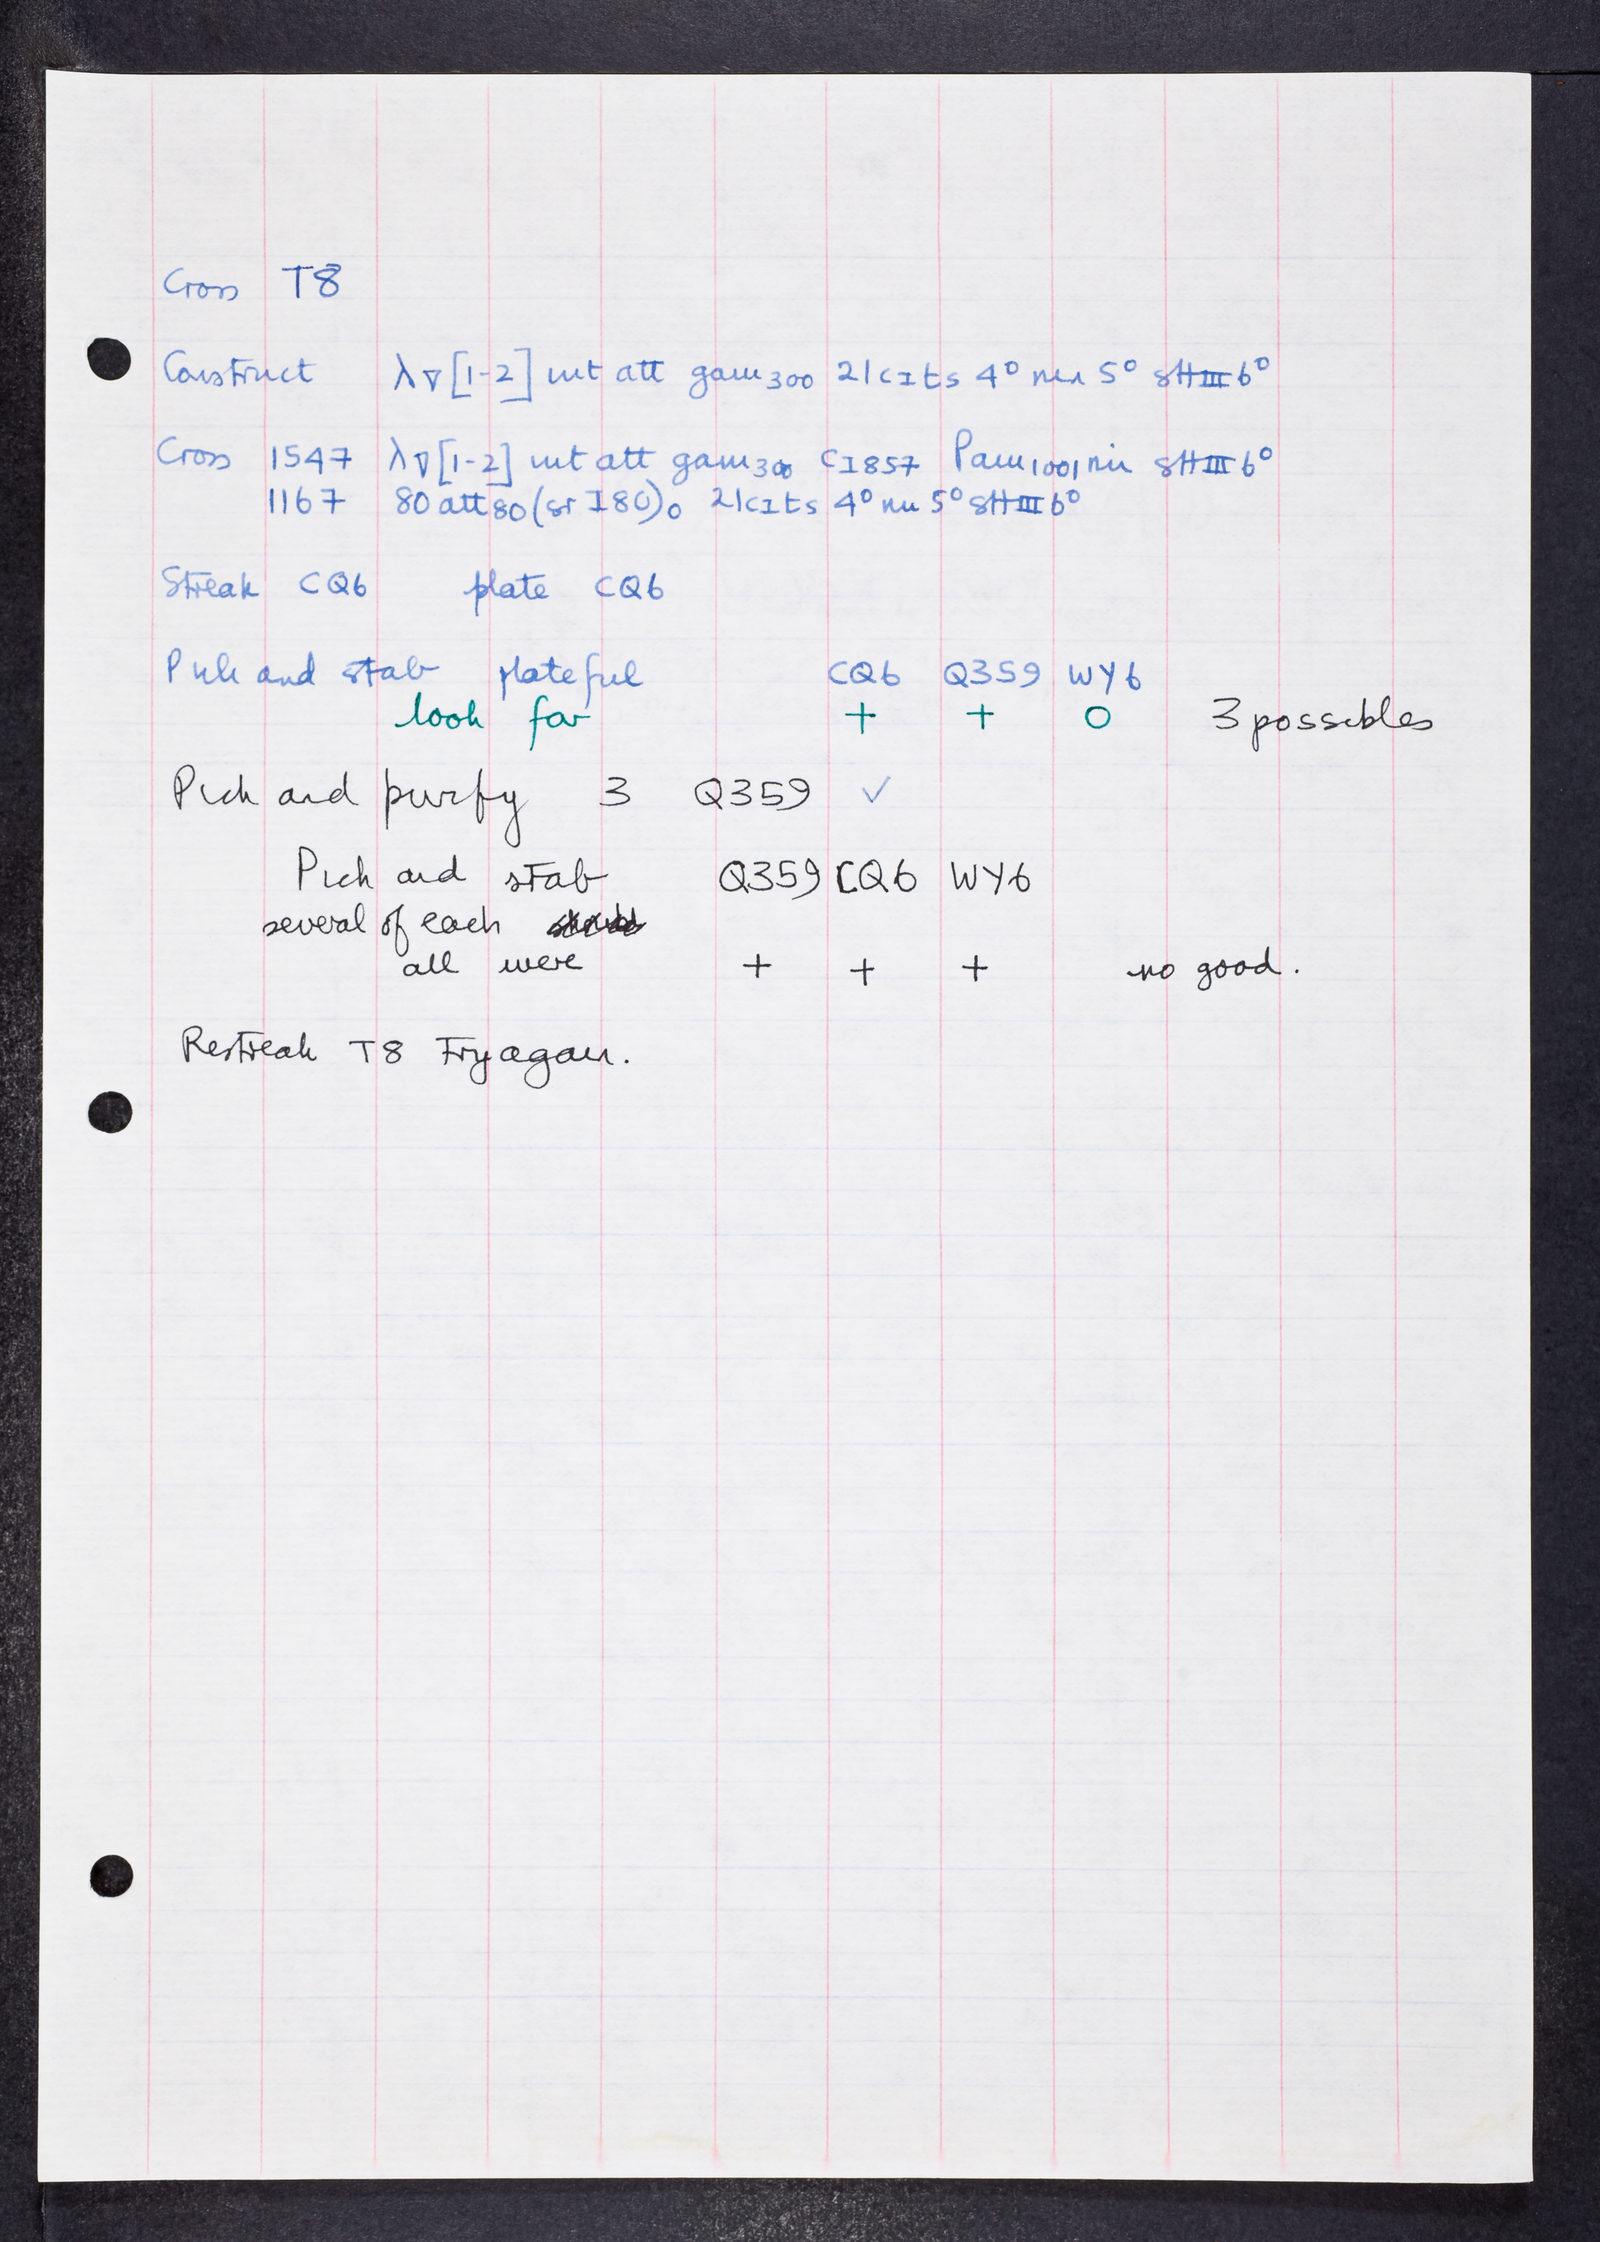 Cross T8
Construct λ∇[1-2] int att gam300 21cIts 4° nin 5° sHIII6°
Cross 1547 λ∇[1-2] int att gam300 cI857 Pam1001 nin sHIII6°
1167 80 att80 (sr I80)0 21cIts 4° nin 5° sHIII6°
Streak CQ6 plate CQ6
Pick and stab plateful CQ6 Q359 WY6
look for + + 0 3 possibles
Pick and purify 3 Q359 ✓
Pick and stab Q359 CQ6 WY6
several of each
all were + + + no good.
Restreak T8 Try again.